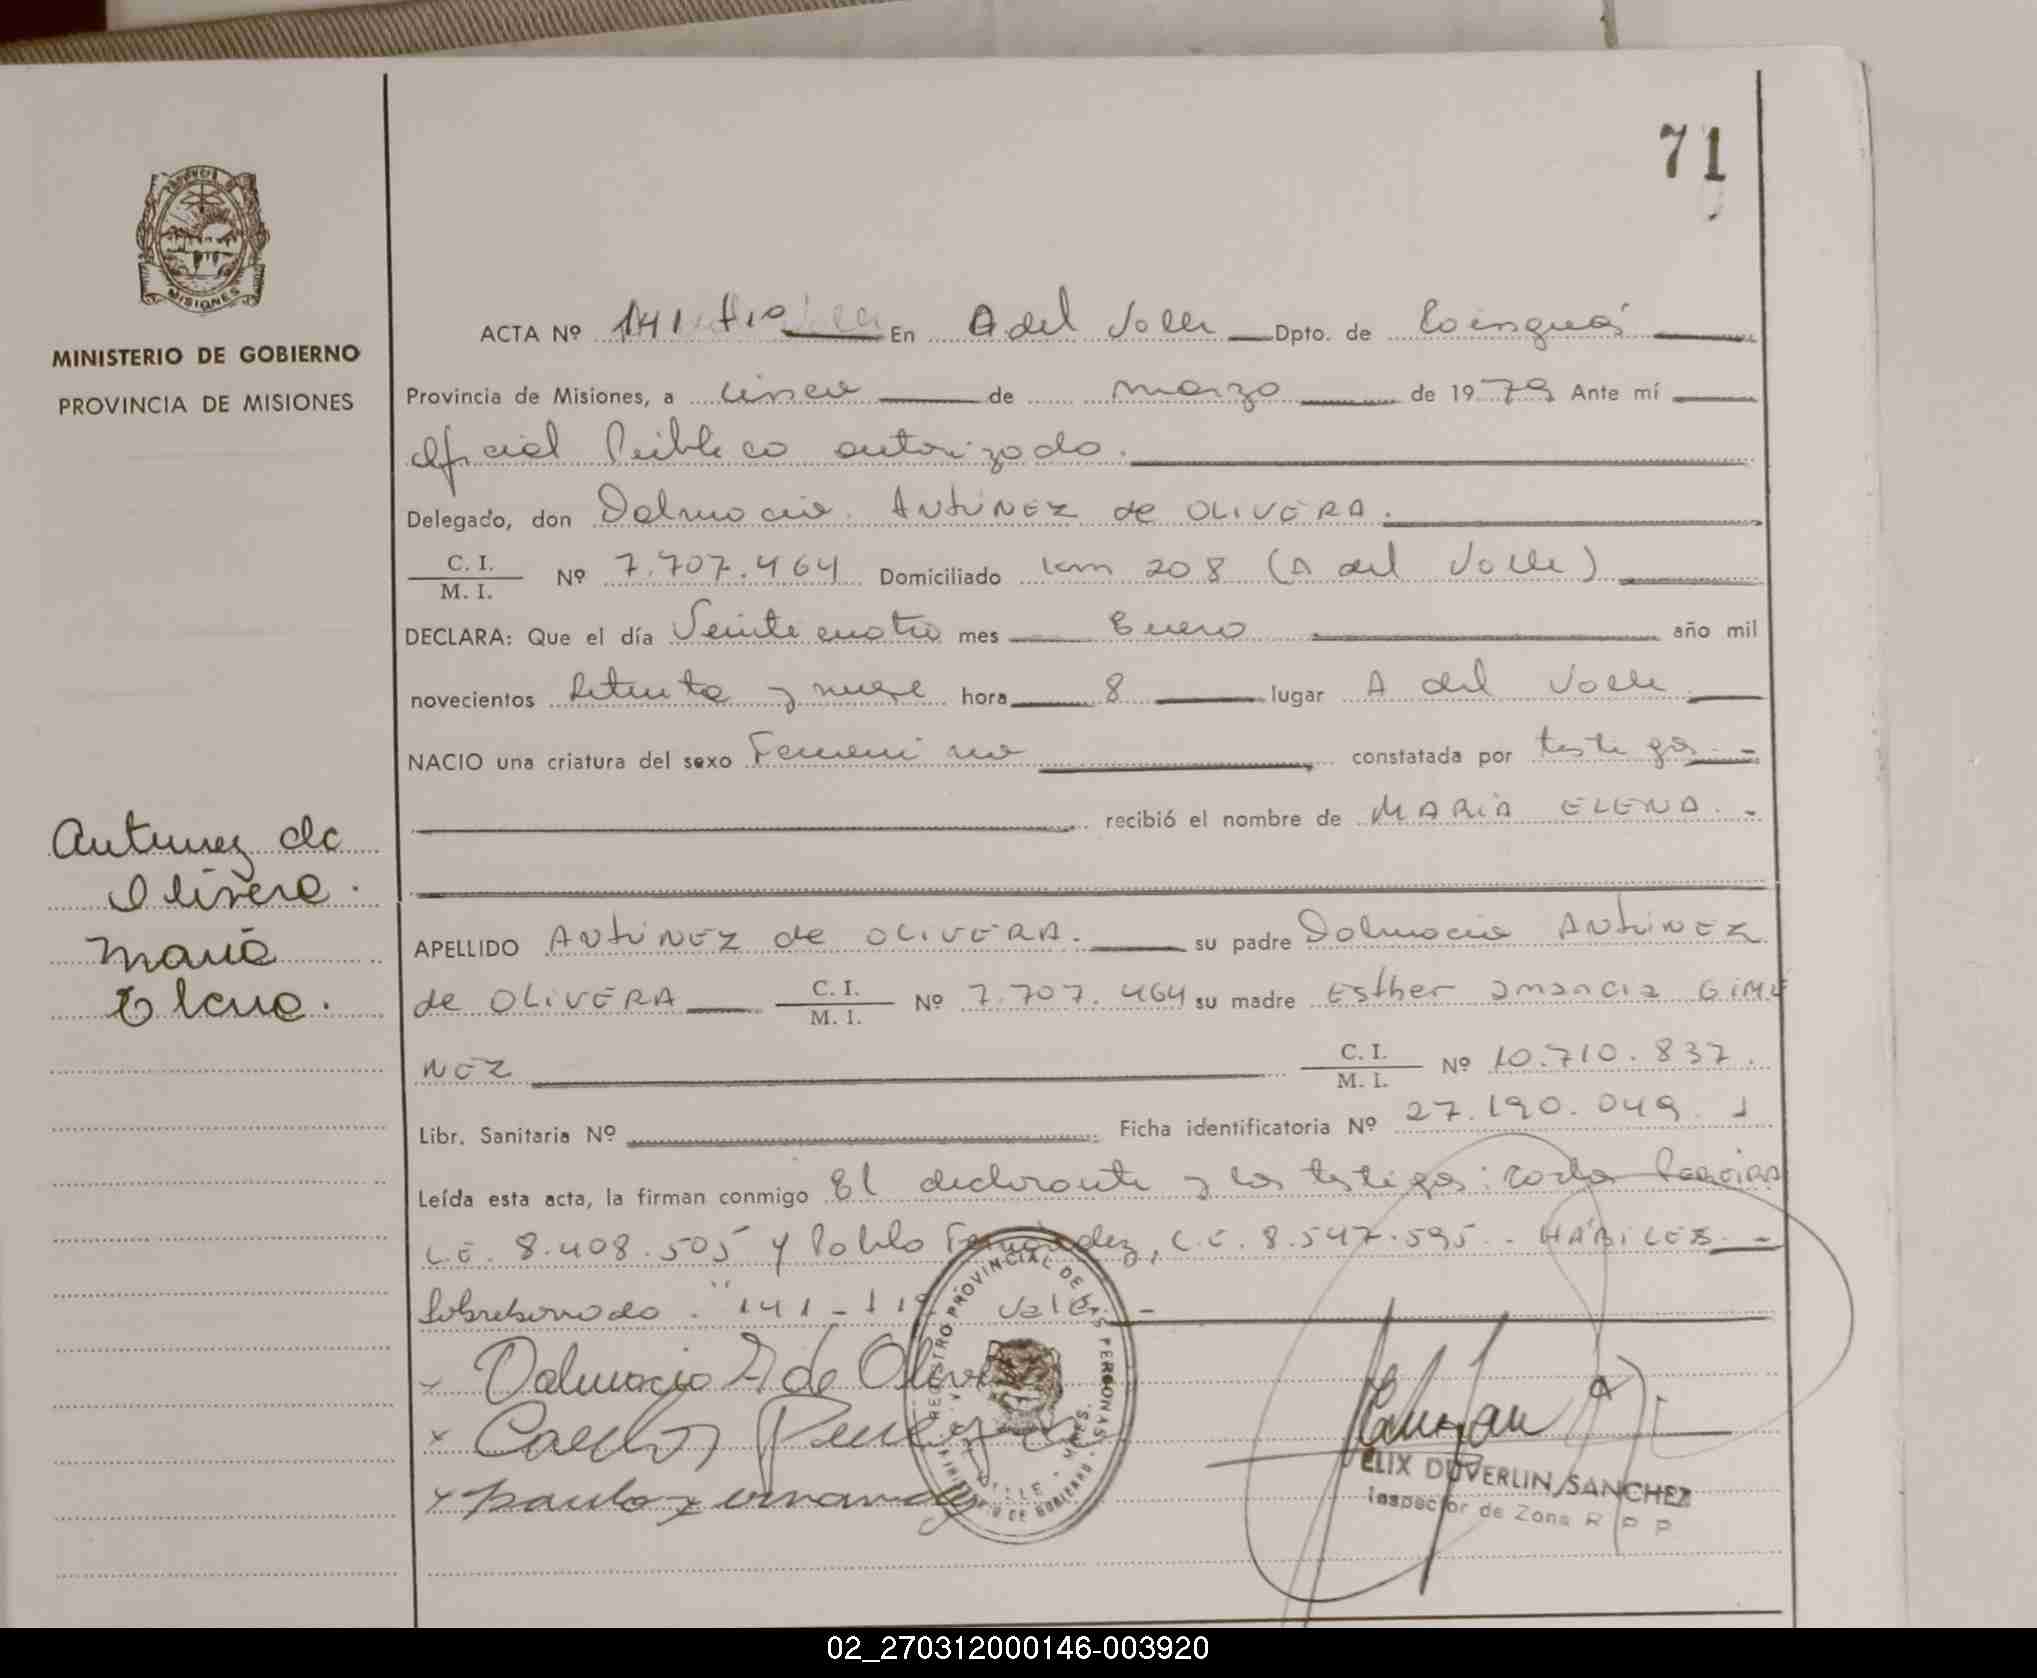 71
PROVINCIA DE
MISIONES
MINISTERIO DE GOBIERNO
PROVINCIA DE MISIONES
ACTA Nº 141 En A del Valle Dpto. de Cainguás
Provincia de Misiones, a cinco de marzo de 1979 Ante mí
oficial Público autorizado.
Delegado, don Dalmacio ANTÚNEZ de OLIVERA.
C. I.
M. I. Nº 7.707.464 Domiciliado km 208 (A del Valle)
DECLARA: Que el día Veinticuatro mes Enero año mil
novecientos setenta y nueve hora 8 lugar A del Valle
NACIO una criatura del sexo Femenino constatada por testigos. -
recibió el nombre de MARIA ELENA. -
Antunez de
Olivera.
Maria
Elena.
APELLIDO ANTÚNEZ de OLIVERA. su padre Dalmacio ANTÚNEZ
de OLIVERA C. I.
M. I. Nº 7.707.464 su madre Esther Amancia GIMÉ
NEZ C. I.
M. I. Nº 10.710.837.
Libr. Sanitaria Nº Ficha identificatoria Nº 27.190.049.
Leída esta acta, la firman conmigo El declarante y los testigos: Carlos
L.E. 8.408.505 y Pablo Fernández, L.E. 8.547.595. - HÁBILES. -
Sobreborrado. "141 - Vale. -
x Dalmacio A de Olivera
x Carlos
x Paulo Fernandez
REGISTRO PROVINCIAL DE LAS PERSONAS
MINISTERIO DE GOBIERNO
VALLE - MNES.
FELIX DUVERLIN SANCHEZ
Inspector de Zona R P P
02_270312000146-003920